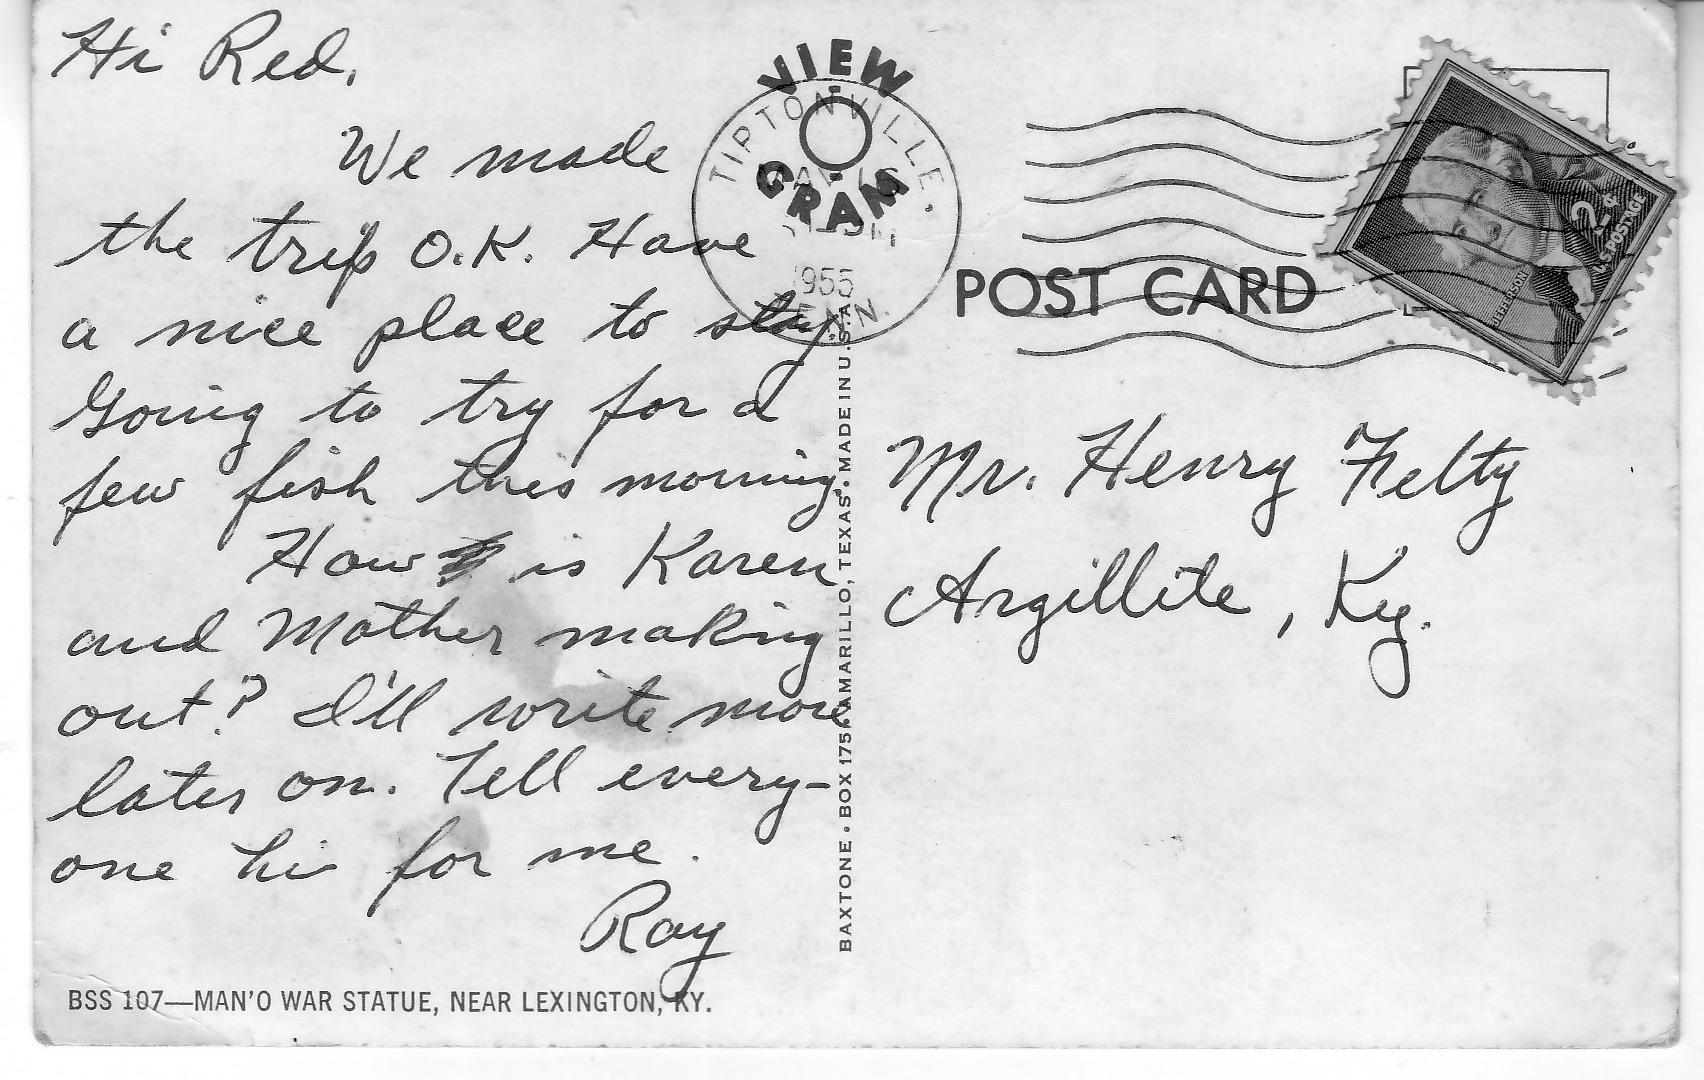 Hi Red,
We made
the trip O.K. Have
a nice place to stay.
Going to try for a
few fish this morning.
How is Karen
and Mother making
out? I'll write more
later on. Tell every-
one hi for me.
Ray
BSS 107—MAN'O WAR STATUE, NEAR LEXINGTON, KY.
BAXTONE • BOX 175 • AMARILLO, TEXAS • MADE IN U.S.A.
VIEW
GRAM
TIPTONVILLE,
MAY
1955
TENN.
POST CARD
2¢
U.S. POSTAGE
JEFFERSON
Mr. Henry Felty
Argillite, Ky.